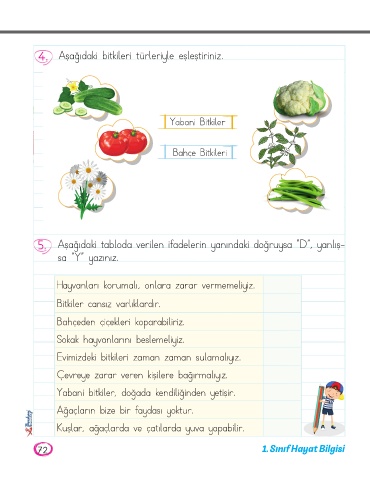 4. Aşağıdaki bitkileri türleriyle eşleştiriniz.
Yabani Bitkiler
Bahçe Bitkileri
5. Aşağıdaki tabloda verilen ifadelerin yanındaki doğruysa "D", yanlış-
sa "Y" yazınız.
Hayvanları korumalı, onlara zarar vermemeliyiz.
Bitkiler cansız varlıklardır.
Bahçeden çiçekleri koparabiliriz.
Sokak hayvanlarını beslemeliyiz.
Evimizdeki bitkileri zaman zaman sulamalıyız.
Çevreye zarar veren kişilere bağırmalıyız.
Yabani bitkiler, doğada kendiliğinden yetişir.
Ağaçların bize bir faydası yoktur.
Kuşlar, ağaçlarda ve çatılarda yuva yapabilir.
72
1. Sınıf Hayat Bilgisi